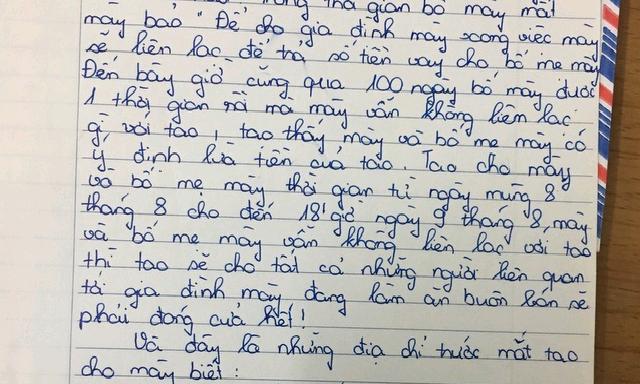 thời gian bố mày mất
mày bảo "Để cho gia đình mày xong việc mày
sẽ liên lạc để trả số tiền vay cho bố mẹ mày
Đến bây giờ cũng qua 100 ngày bố mày được
1 thời gian rồi mà mày vẫn không liên lạc
gì với tao, tao thấy mày và bố mẹ mày có
ý định lừa tiền của tao. Tao cho mày
và bố mẹ mày thời gian từ ngày mùng 8
tháng 8 cho đến 18 giờ ngày 9 tháng 8, mày
và bố mẹ mày vẫn không liên lạc với tao
thì tao sẽ cho tất cả những người liên quan
tới gia đình mày đang làm ăn buôn bán sẽ
phải đóng cửa hết!
Và đây là những địa chỉ trước mắt tao
cho mày biết: